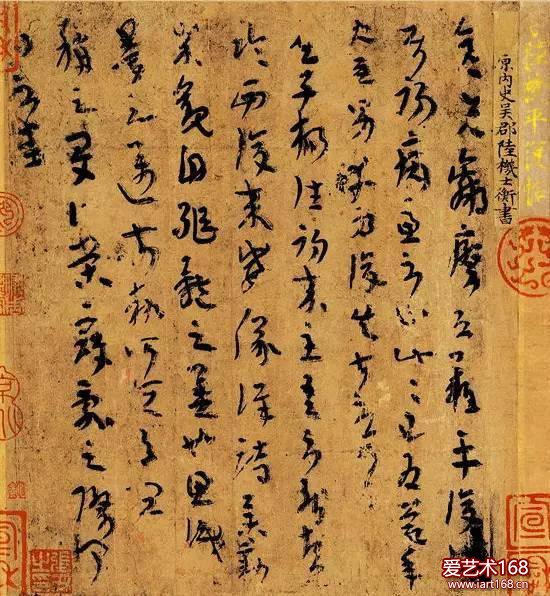 晉陸機平復帖
原內史吳郡陸機士衡書
彥先羸瘵恐難平復往屬
初病慮不止此此已為慶承
使唯男幸為復失前憂耳
吳子楊往初來主吾不能盡
臨西復來威儀詳跱舉動
成觀自軀體之美也思識
量之邁前執所恒有宜
稱之夏伯榮寇亂之際聞
問不悉
爱艺术168
www.iart168.cn